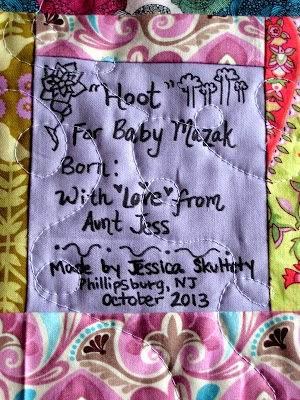 "Hoot"
For Baby Mazak
Born:
With Love from
Aunt Jess
Made by Jessica
Phillipsburg, NJ
October 2013